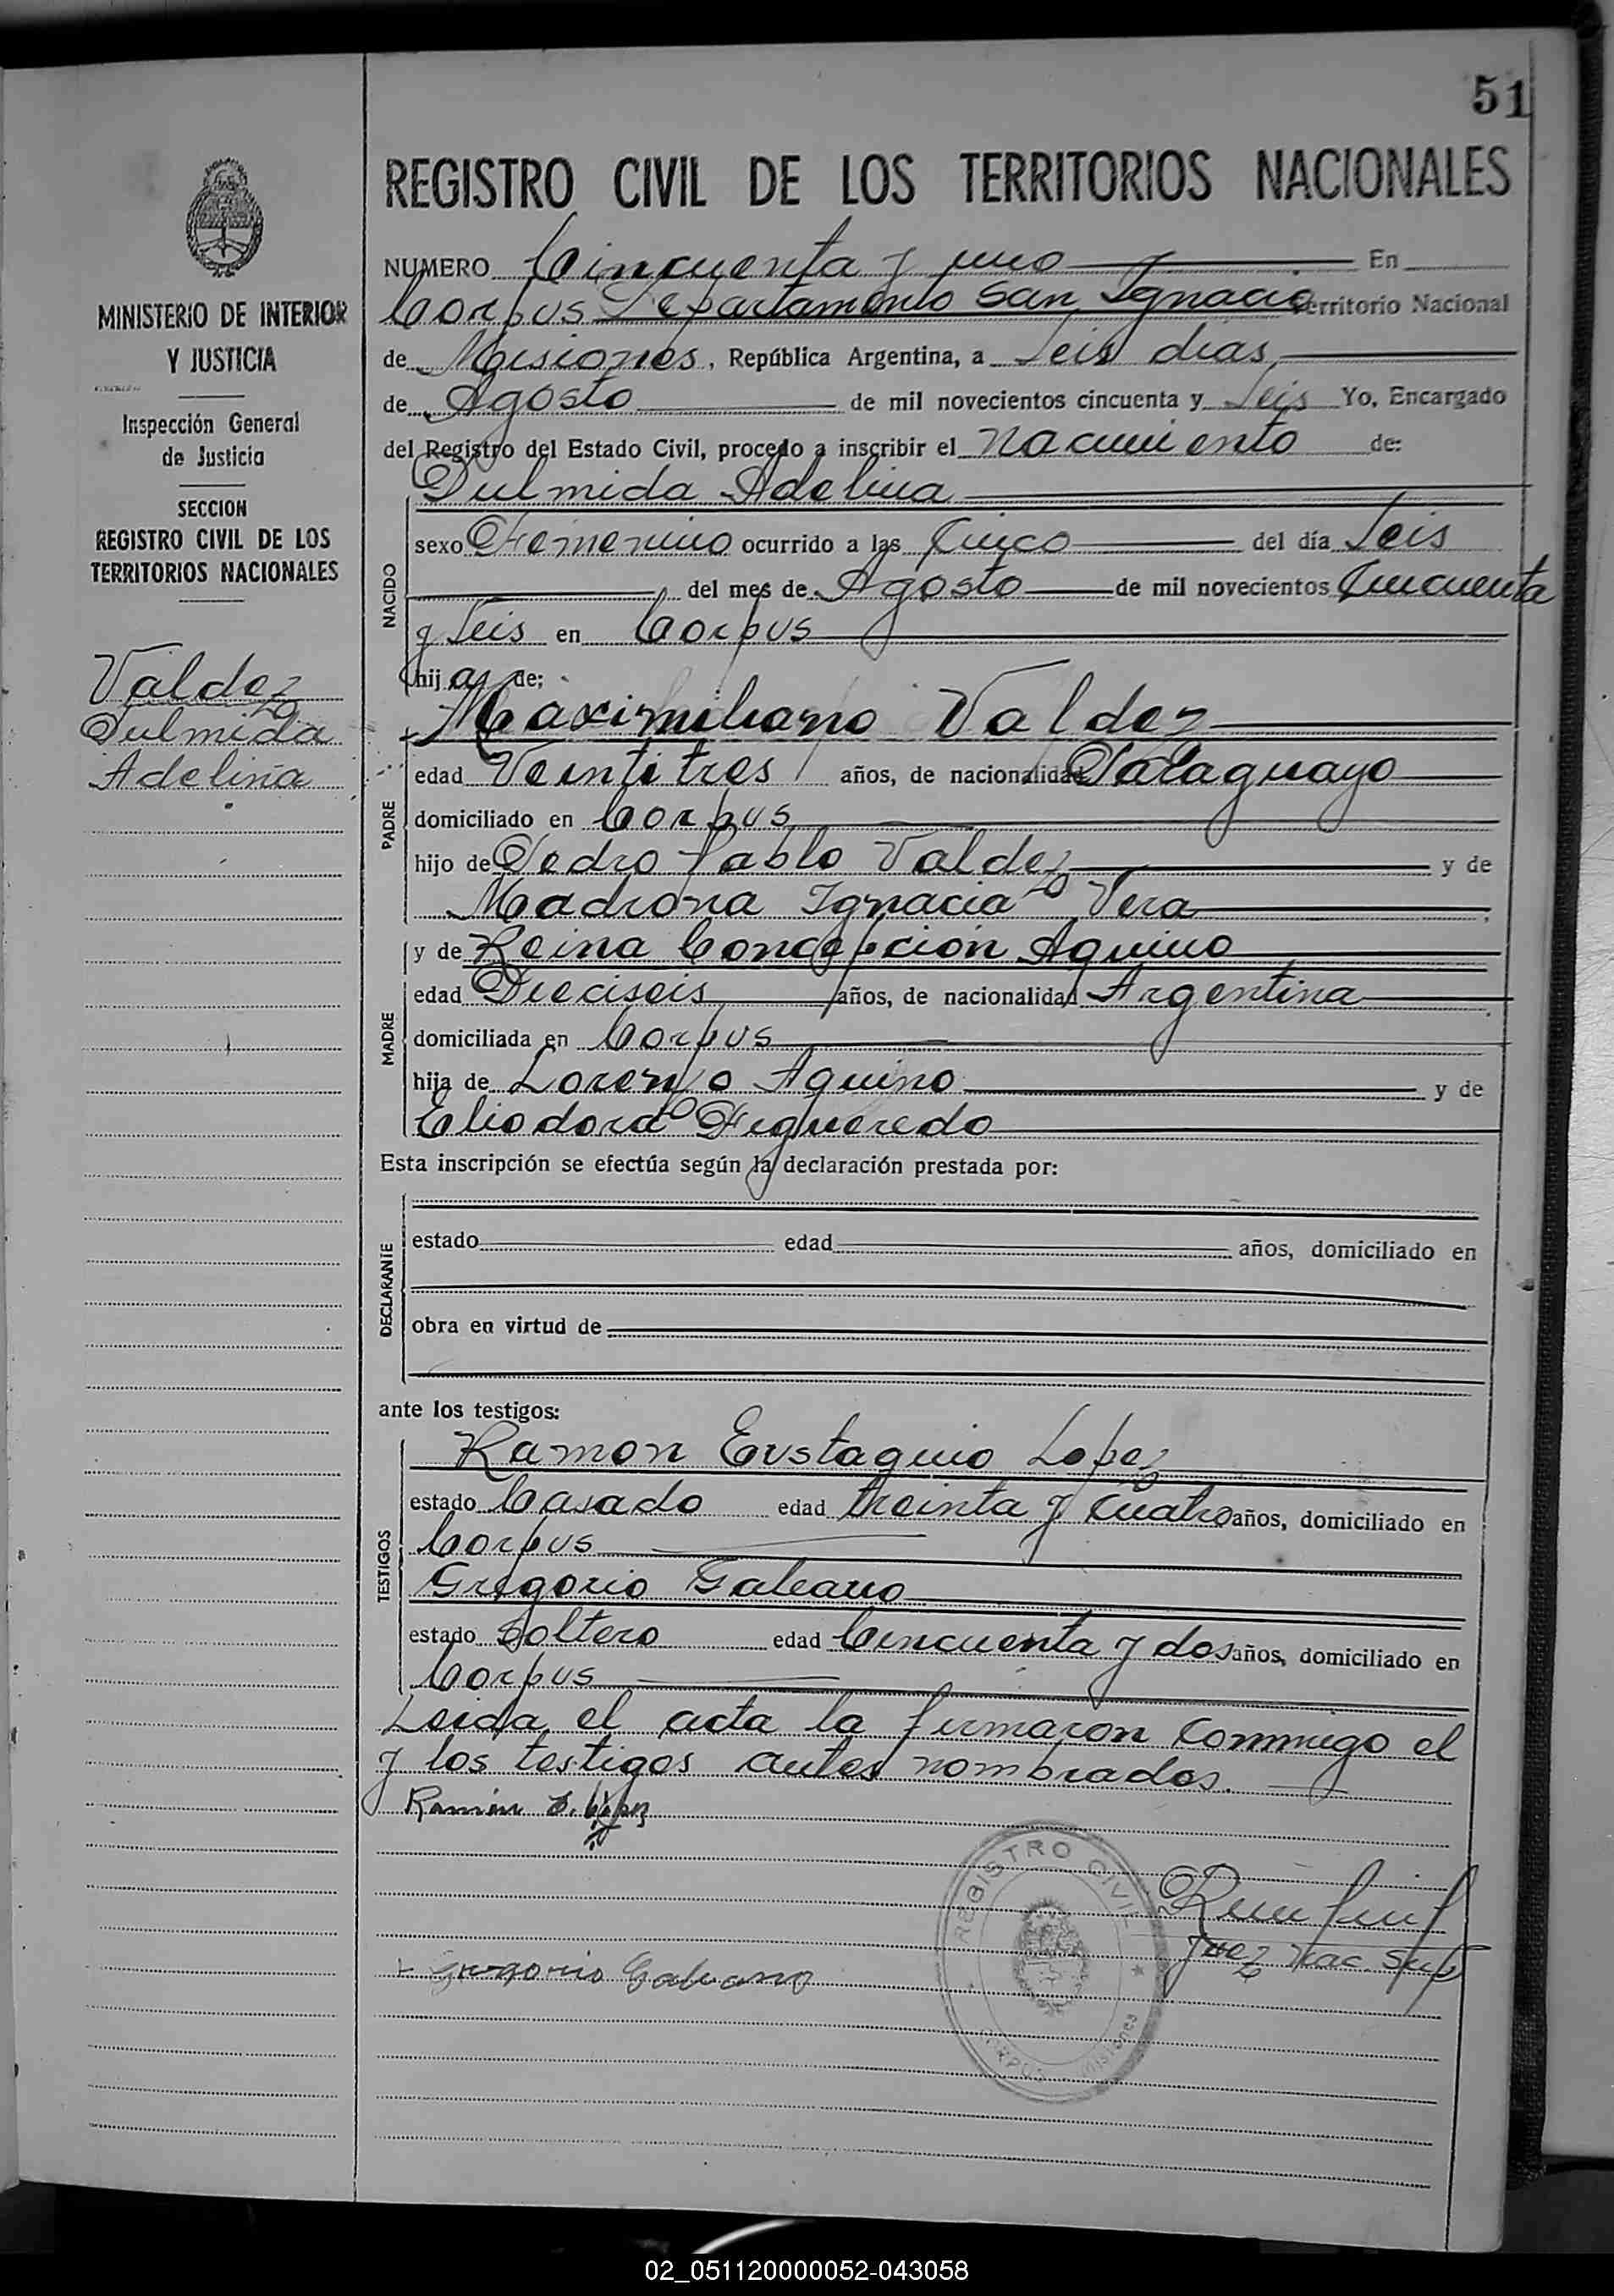 51
REGISTRO CIVIL DE LOS TERRITORIOS NACIONALES
MINISTERIO DE INTERIOR
Y JUSTICIA
Inspección General
de Justicia
SECCION
REGISTRO CIVIL DE LOS
TERRITORIOS NACIONALES
Valdez
Dulmida
Adelina
NUMERO Cincuenta y uno En
Corpus Departamento San Ignacio Territorio Nacional
de Misiones, República Argentina, a Seis dias
de Agosto de mil novecientos cincuenta y Seis Yo, Encargado
del Registro del Estado Civil, procedo a inscribir el Nacimiento de:
Dulmida Adelina
NACIDO
sexo Femenino ocurrido a las Cinco del día Seis
del mes de Agosto de mil novecientos Cincuenta
y Seis en Corpus
hija de:
Maximiliano Valdez
PADRE
edad Veintitres años, de nacionalidad Paraguayo
domiciliado en Corpus
hijo de Pedro Pablo Valdez y de
Madrona Ignacia Vera
MADRE
y de Reina Concepcion Aquino
edad Dieciseis años, de nacionalidad Argentina
domiciliada en Corpus
hija de Lorenzo Aquino y de
Eliodora Figueredo
Esta inscripción se efectúa según la declaración prestada por:
DECLARANTE
estado edad años, domiciliado en
obra en virtud de
ante los testigos:
TESTIGOS
Ramon Eustaquio Lopez
estado Casado edad treinta y Cuatro años, domiciliado en
Corpus
Gregorio Galeano
estado Soltero edad Cincuenta y dos años, domiciliado en
Corpus
Leida el acta la firmaron conmigo el
y los testigos antes nombrados.
Ramón E. López
REGISTRO CIVIL
CORPUS Misiones
Juez
Gregorio Galeano
02_051120000052-043058